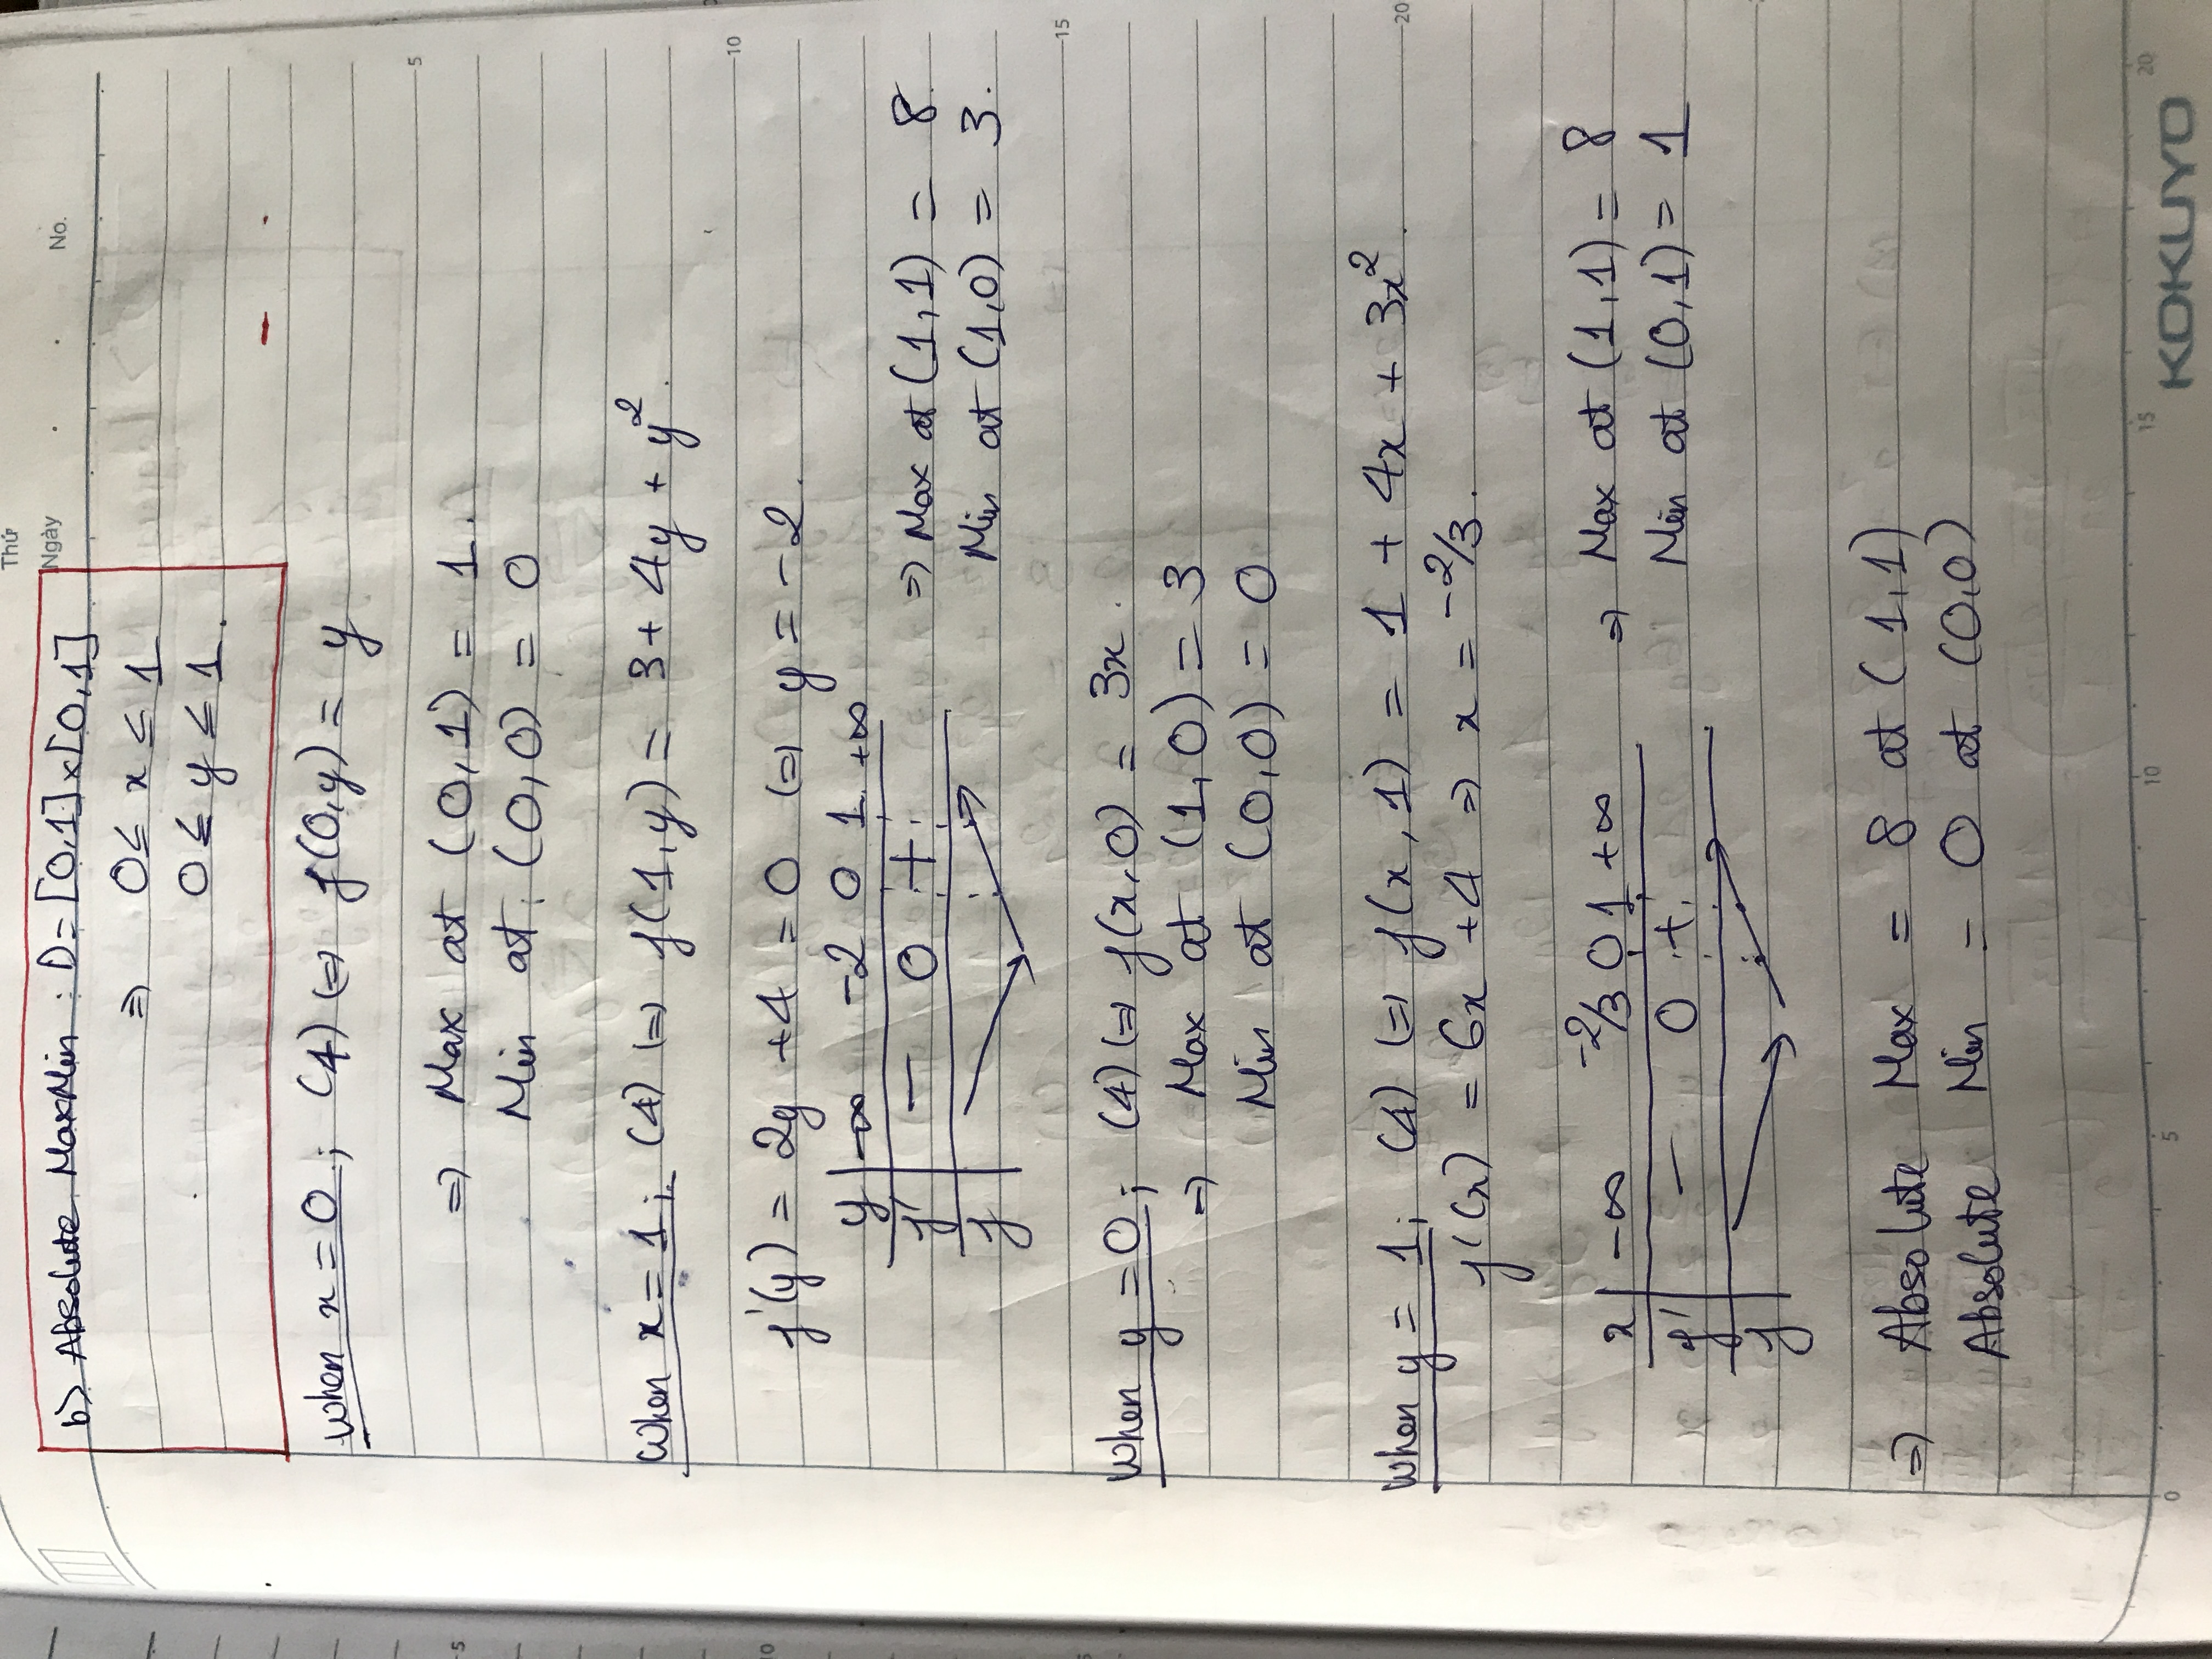 Thứ
Ngày . . No.
b) Absolute MaxMin : D = [0,1] x [0,1]
⇒ 0 ≤ x ≤ 1
0 ≤ y ≤ 1.
When x = 0 ; (4) (=) f(0,y) = y
5
⇒ Max at (0,1) = 1.
Min at (0,0) = 0
When x = 1 ; (4) (=) f(1,y) = 3 + 4y + y².
10
f'(y) = 2y + 4 = 0 (=) y = -2.
y | -∞ -2 0 1 +∞
f' | - 0 +
f
⇒ Max at (1,1) = 8.
Min at (1,0) = 3.
15
When y = 0 ; (4) (=) f(x,0) = 3x.
⇒ Max at (1,0) = 3
Min at (0,0) = 0
When y = 1 ; (4) (=) f(x,1) = 1 + 4x + 3x².
20
f'(x) = 6x + 4 ⇒ x = -2/3.
x | -∞ -2/3 0 1 +∞
f' | - 0 +
f
⇒ Max at (1,1) = 8
Min at (0,1) = 1
⇒ Absolute Max = 8 at (1,1)
Absolute Min = 0 at (0,0)
0 5 10 15 20
KOKUYO